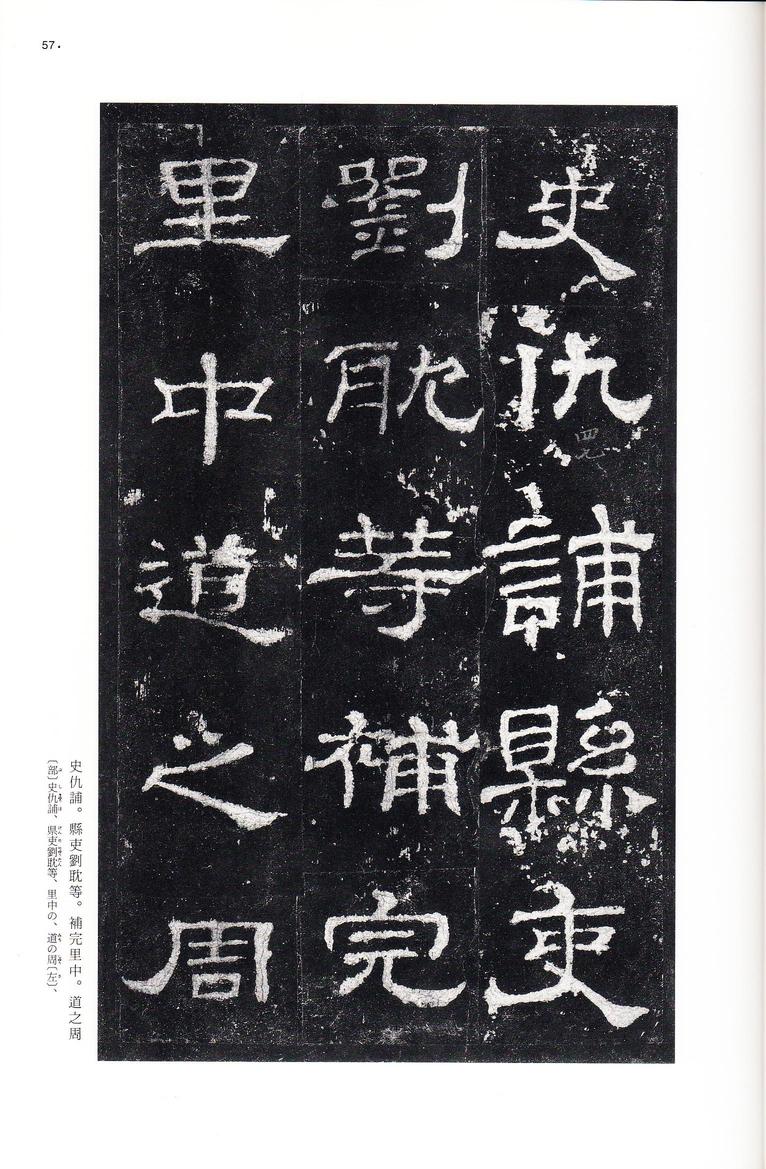 57.
史仇誧縣吏
劉耽等補完
里中道之周
四九
史仇誧。縣吏劉耽等。補完里中。道之周
〔部〕史仇誧、県吏劉耽等、里中の、道の周〔左〕、